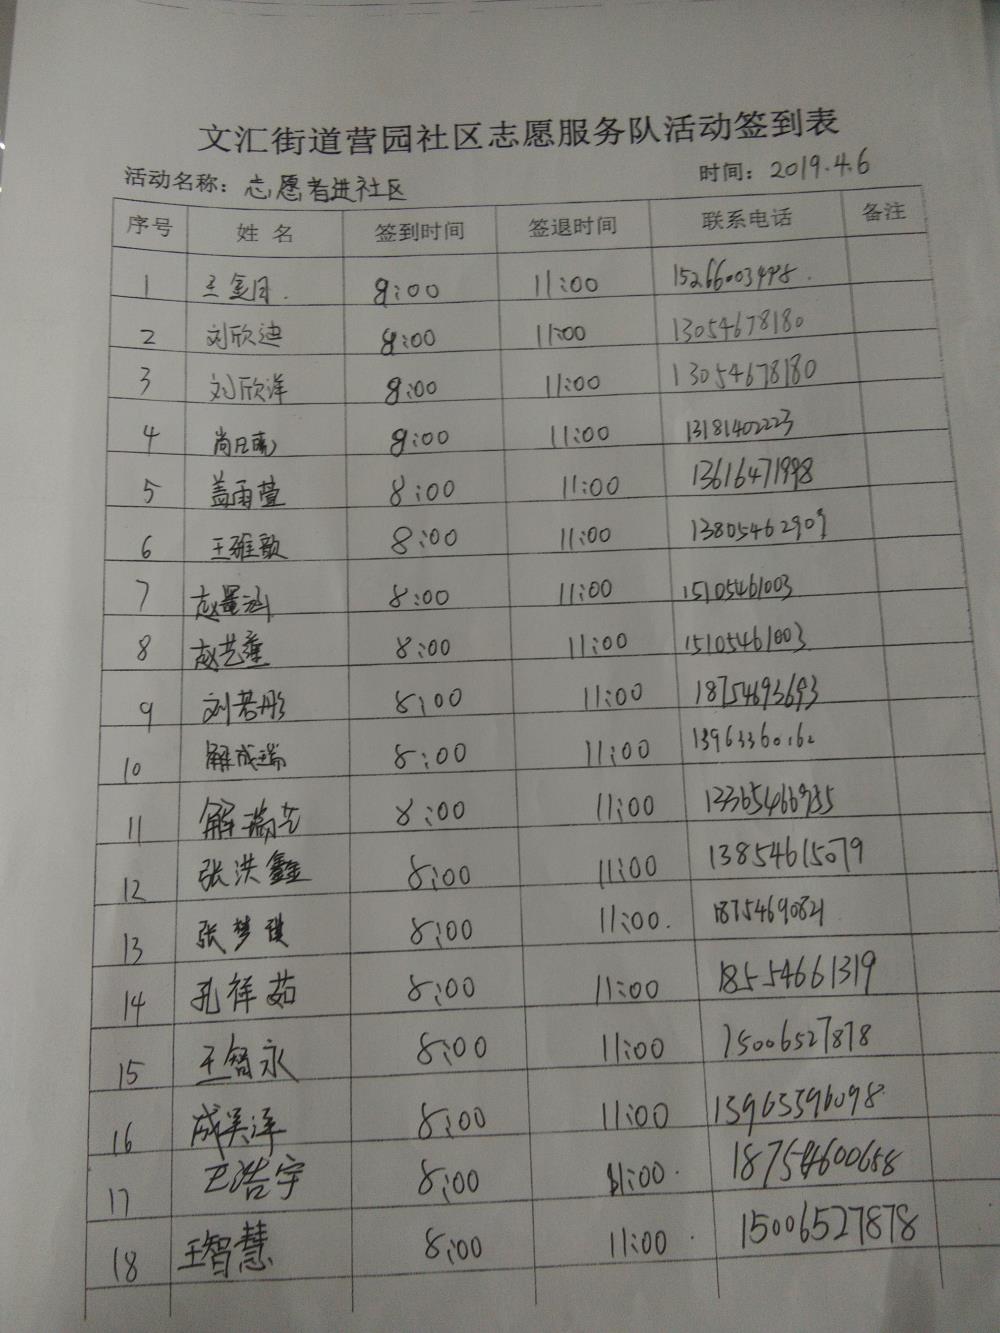 文汇街道营园社区志愿服务队活动签到表
活动名称：志愿者进社区 时间：2019.4.6
序号 姓名 签到时间 签退时间 联系电话 备注
1 王金月 8:00 11:00 15266003498
2 刘欣迪 8:00 11:00 13054678180
3 刘欣洋 8:00 11:00 13054678180
4 8:00 11:00 13181402223
5 盖雨萱 8:00 11:00 13616471998
6 王雅歌 8:00 11:00 13805462909
7 8:00 11:00 15105461003
8 8:00 11:00 15105461003
9 刘若彤 8:00 11:00 18754693693
10 解成瑞 8:00 11:00 13963360162
11 解瑞芝 8:00 11:00
12 张洪鑫 8:00 11:00 13854615079
13 张梦琪 8:00 11:00. 18754690821
14 孔祥茹 8:00 11:00 18554661319
15 王智永 8:00 11:00 15006527878
16 成昊泽 8:00 11:00 13963396098
17 王浩宇 8:00 11:00. 18754600658
18 王智慧 8:00 11:00 15006527878